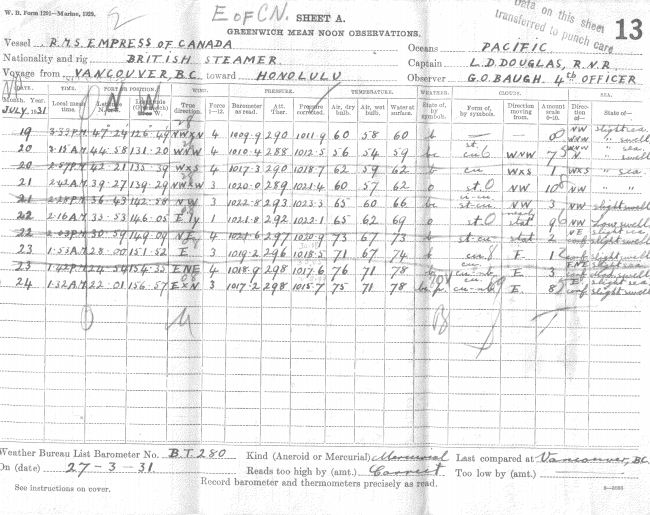 W. B. Form 1201—Marine, 1929.
2
E OF C N.
SHEET A.
GREENWICH MEAN NOON OBSERVATIONS.
Data on this sheet
transferred to punch card
13
Vessel R.M.S. EMPRESS OF CANADA
Oceans PACIFIC
Nationality and rig BRITISH STEAMER
Captain L.D. DOUGLAS, R.N.R.
Voyage from VANCOUVER, B.C. toward HONOLULU
Observer G.O. BAUGH. 4th OFFICER
DATE. TIME. PORT OR POSITION. WIND. PRESSURE. TEMPERATURE. WEATHER. CLOUDS. SEA.
Month. Year. Local mean time. Latitude Longitude True direction. Force 1—12. Barometer as read. Att. Ther. Pressure corrected. Air, dry bulb. Air, wet bulb. Water at surface. State of, by symbols. Form of, by symbols. Direction moving from. Amount scale 0-10. Direction of— State of—
JULY 1931
19 3-33 P.M. 47-24 126-49 NWxN 4 1009-9 290 1011-9 60 58 60 b — — 0 NW slight sea
20 3-15 A.M. 44-58 131-20 WNW 4 1010-4 288 1012-5 56 54 59 bc cu WNW 7
20 2-57 P.M. 42-21 135-39 WxS 4 1017-3 290 1018-7 62 59 62 b cu WxS 1 WxS " sea
21 2-42 A.M. 39-27 139-29 NWxW 3 1020-0 289 1021-4 60 57 62 o st. NW 10 NW " "
21 2-28 P.M. 36-43 142-58 NW 3 1022-8 293 1023-3 65 60 66 bc st-cu. NW 3 NW slight swell
22 2-16 A.M. 35-53 146-05 E'ly 1 1021-8 292 1022-1 65 62 69 o st. stat 9 NW low swell
22 2-03 P.M. 30-59 149-09 4 1021-6 297 1020-9 73 67 73 b st-cu stat 2 conf slight swell
23 1-53 A.M. 28-00 151-52 E 3 1019-2 296 1018-5 71 67 74 b cu. E 1 conf slight swell
23 1-42 P.M. 24-54 154-35 ENE 4 1018-9 298 1017-6 76 71 78 cu-nb E 3 conf slight swell
24 1-32 A.M. 22-01 156-57 ExN 3 1017-2 298 1015-7 75 71 78 cu-nb E 8 conf slight swell
Weather Bureau List Barometer No. B.T. 280 Kind (Aneroid or Mercurial) Mercurial Last compared at Vancouver, B.C.
On (date) 27-3-31. Reads too high by (amt.) Correct Too low by (amt.)
See instructions on cover.
Record barometer and thermometers precisely as read.